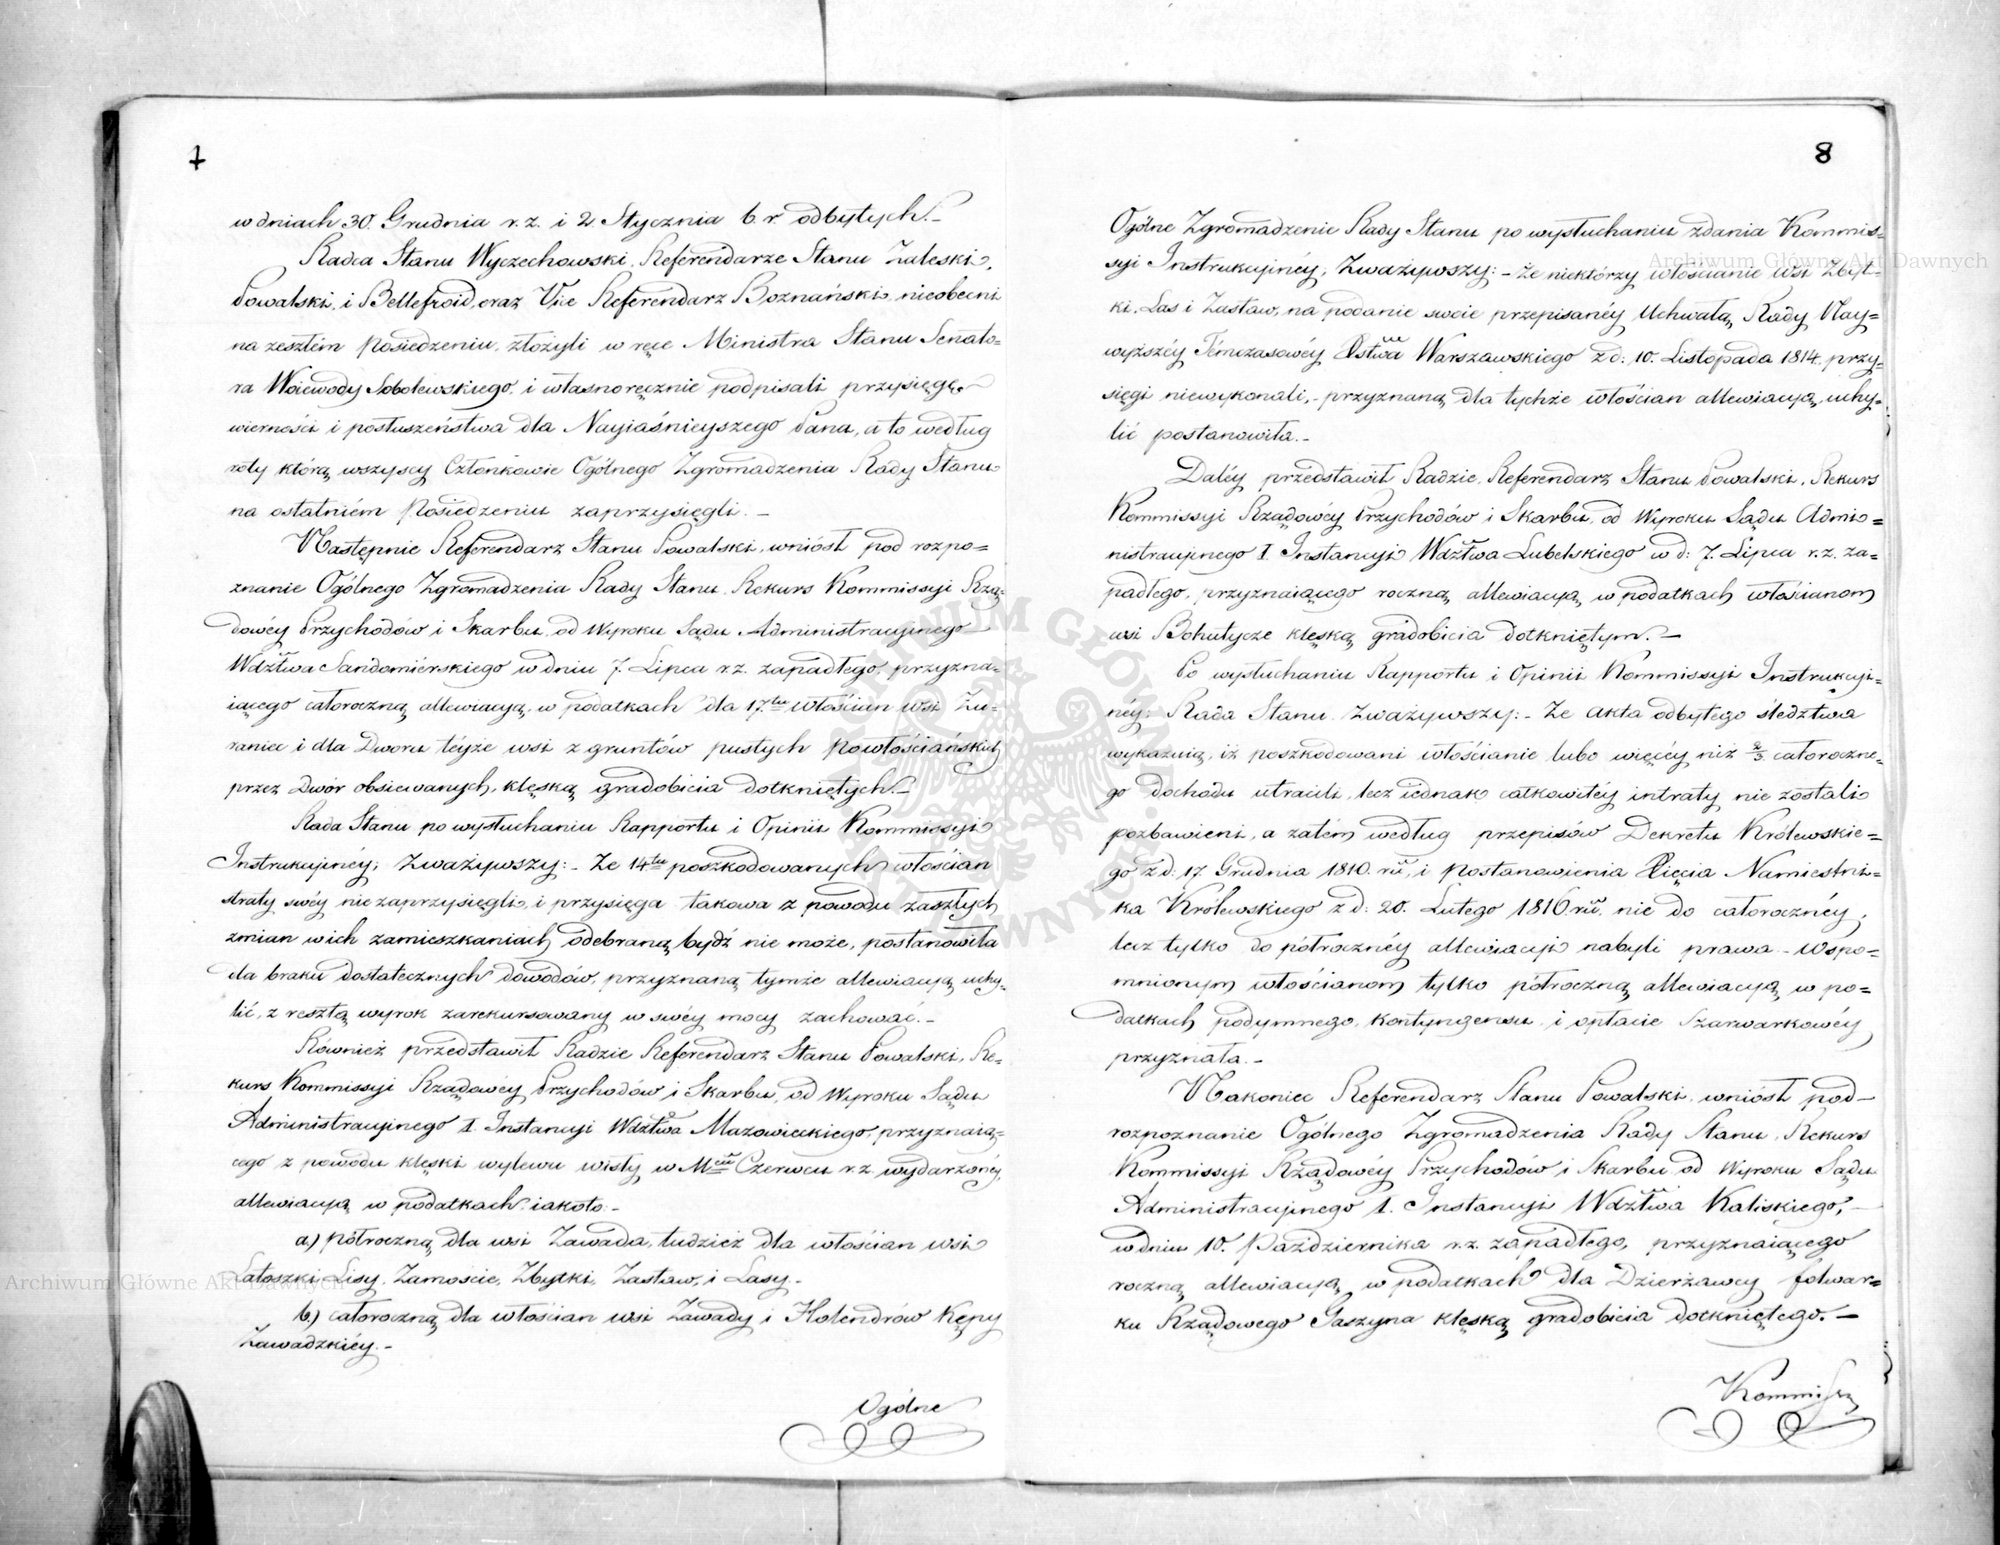 7
w dniach 30. Grudnia r. z. i 2. Stycznia b. r. odbytych. –
Radca Stanu Wyczechowski, Referendarze Stanu Zaleski,
Powalski, i Bellefroid, oraz Vice Referendarz Boznański, nieobecni
na zeszłém posiedzeniu, złożyli w ręce Ministra Stanu Senato=
ra Woiewody Sobolewskiego, i własnoręcznie podpisali przysięgę
wierności i posłuszeństwa dla Nayiaśnieyszego Pana, a to według
roty którą wszyscy Członkowie Ogólnego Zgromadzenia Rady Stanu
na ostatniém Posiedzeniu zaprzysięgli. –
Następnie Referendarz Stanu Powalski, wniósł pod rozpo=
znanie Ogólnego Zgromadzenia Rady Stanu, Rekurs Kommissyi Rzą=
dowéy Przychodów i Skarbu, od Wyroku Sądu Administracyinego
Wdztwa Sandomiérskiego w dniu 7. Lipca r. z. zapadłego, przyzna=
iącego całoroczną allewiacyą, w podatkach dla 17.tu włościan wsi Żu=
raniec i dla Dworu téyże wsi z gruntów pustych powłościańskich
przez Dwór obsiewanych, klęską gradobicia dotkniętych. –
Rada Stanu po wysłuchaniu Rapportu i Opinii Kommissyi
Instrukcyinéy, Zważywszy: – Że 14tu poszkodowanych włościan
straty swéy nie zaprzysięgli, i przysięga takowa z powodu zaszłych
zmian w ich zamieszkaniach odebraną bydź nie może, postanowiła
dla braku dostatecznych dowodów, przyznaną tymże allewiacyą uchy=
lić, z resztą wyrok zarekursowany w swéy mocy zachować. –
Również przedstawił Radzie Referendarz Stanu Powalski, Re=
kurs Kommissyi Rządowéy Przychodów i Skarbu, od Wyroku Sądu
Administracyinego I. Instancyi Wdztwa Mazowieckiego, przyznaią=
cego z powodu klęski wylewu wisły w Mcu Czerwcu r. z. wydarzonéy,
allewiacyą w podatkach iakoto: –
a.) półroczną dla wsi Zawada, tudzież dla włościan wsi
Latoszki, Lisy, Zamoście, Zbytki, Zastaw, i Lasy. –
b.) całoroczną dla włościan wsi Zawady i Holendrów Kępy
Zawadzkiéy. –
Ogólne
8
Ogólne Zgromadzenie Rady Stanu po wysłuchaniu zdania Kommis=
syi Instrukcyinéy, Zważywszy: – Że niektórzy włościanie wsi Zbyt=
ki, Las i Zastaw, na podanie swoie przepisanéy Uchwałą Rady Nay=
wyższéy Témczasowéy Xstwa Warszawskiego z d: 10. Listopada 1814. przy=
sięgi niewykonali, – przyznaną dla tychże włościan allewiacyą, uchy=
lić postanowiła. –
Daléy przedstawił Radzie, Referendarz Stanu Powalski, Rekurs
Kommissyi Rządowéy Przychodów i Skarbu, od Wyroku Sądu Admi=
nistracyinego I. Instancyi Wdztwa Lubelskiego w d: 7. Lipca r. z. za=
padłego, przyznaiącego roczną allewiacyą w podatkach włościanom
wsi Bohutycze klęską gradobicia dotkniętym. –
Po wysłuchaniu Rapportu i Opinii Kommissyi Instrukcyi=
néy: Rada Stanu Zważywszy: – Że akta odbytego śledztwa
wykazuią, iż poszkodowani włościanie lubo więcéy niż 2/3 całoroczne=
go dochodu utracili, lecz iednak całkowitéy intraty nie zostali
pozbawieni, a zatém według przepisów Dekretu Królewskie=
go z d: 17. Grudnia 1810. ru, i Postanowienia Xięcia Namiestni=
ka Królewskiego z d: 20. Lutego 1816. ru, nie do całorocznéy,
lecz tylko do półrocznéy allewiacyi nabyli prawa – Wspo=
mnionym włościanom tylko półroczną allewiacyą w po=
datkach podymnego, kontyngensu i opłacie Szarwarkowéy
przyznała. –
Nakoniec Referendarz Stanu Powalski, wniósł pod
rozpoznanie Ogólnego Zgromadzenia Rady Stanu, Rekurs
Kommissyi Rządowéy Przychodów i Skarbu od Wyroku Sądu
Administracyinego I. Instancyi Wdztwa Kaliskiego, –
w dniu 10. Października r. z. zapadłego, przyznaiącego
roczną allewiacyą w podatkach dla Dzierżawcy folwar=
ku Rządowego Gaszyna klęską gradobicia dotkniętego. –
Kommissya
Archiwum Główne Akt Dawnych
Archiwum Główne Akt Dawnych
ARCHIWUM GŁÓWNE AKT DAWNYCH